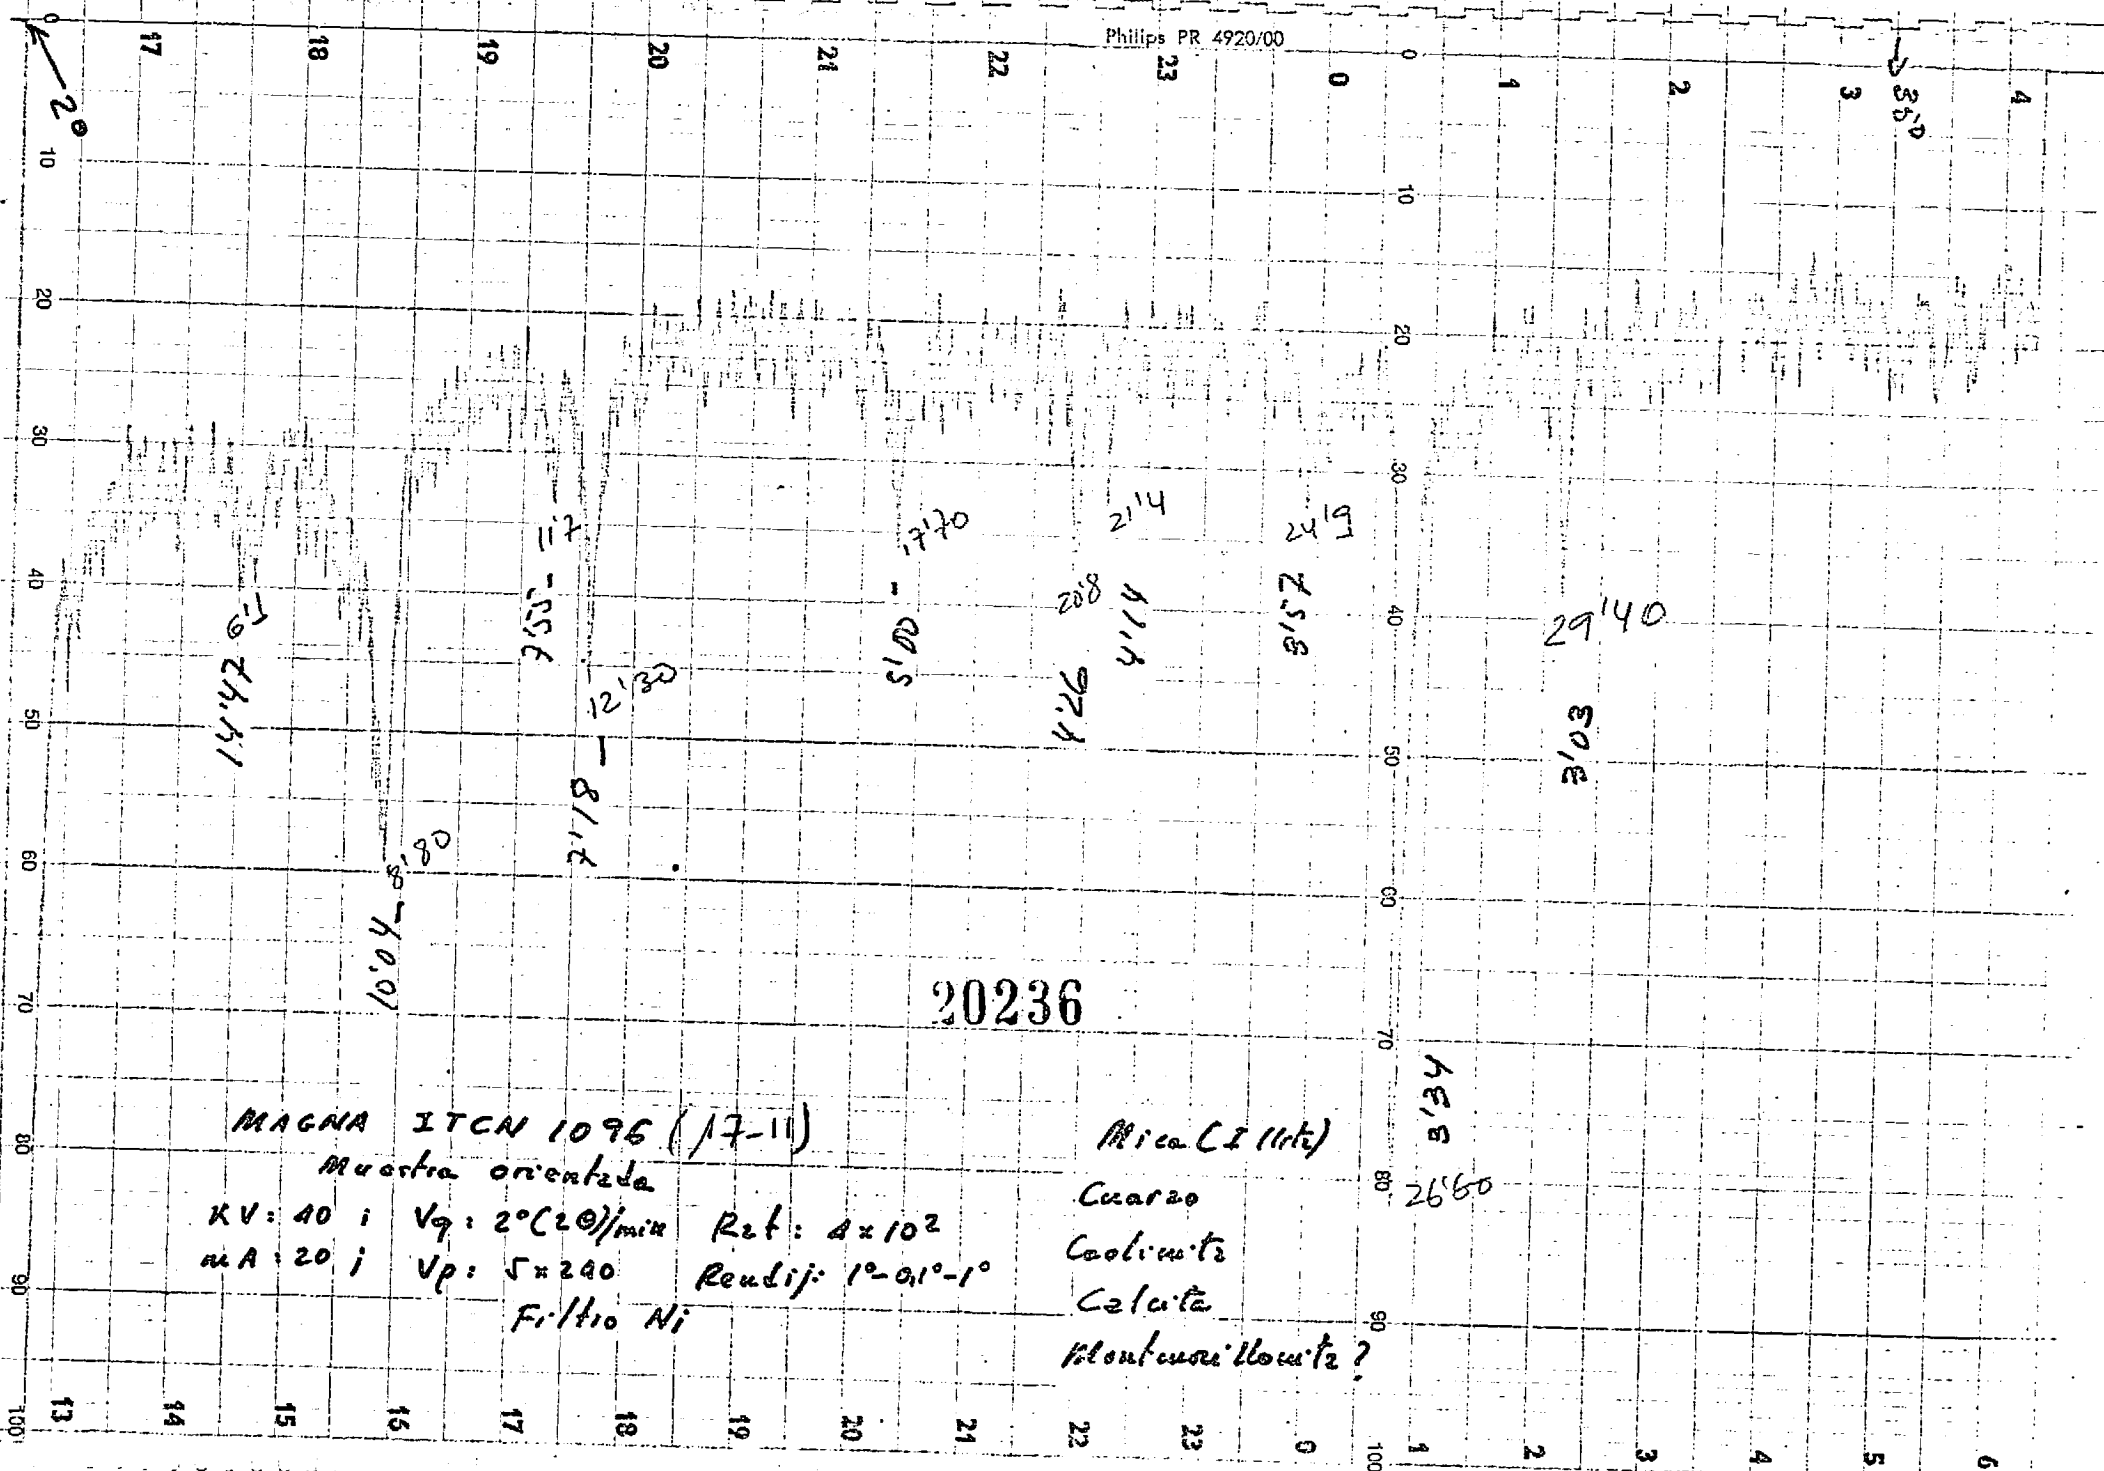 Philips PR 4920/00
0 17 18 19 20 21 22 23 0 0 1 2 3 4
2θ
10 10
20 20
30 30
40 40
50 50
60 60
70 70
80 80
90 90
14'47 6'1
10'04 8'80
7'55 - 11'7
7'18 - 12'30
5'00 - 17'70
4'26 20'8
4'14 21'4
3'57 24'9
3'34 26'60
3'03 29'40
20236
MAGNA ITCN 1096 (17-11)
Muestra orientada
KV: 40 ; Vg: 2°(2θ)/min Rat: 4x10²
mA: 20 ; Vp: 5x240 Rendij: 1°-0,1°-1°
Filtro Ni
Mica (Illita)
Cuarzo
Caolinita
Calcita
Montmorillonita ?
100 13 14 15 16 17 18 19 20 21 22 23 0 100 1 2 3 4 5 6